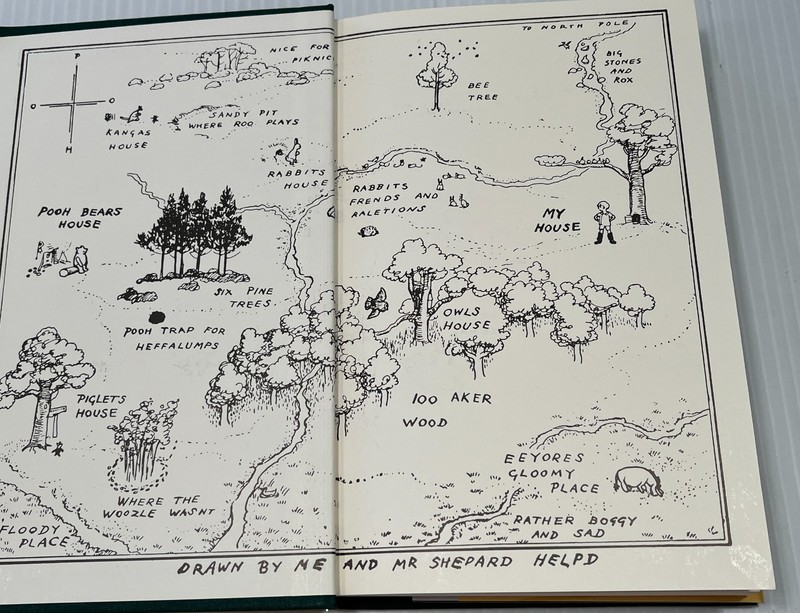 P
O
O
H
NICE FOR
PIKNIC
KANGAS
HOUSE
SANDY PIT
WHERE ROO PLAYS
RABBITS
HOUSE
POOH BEARS
HOUSE
SIX PINE
TREES
POOH TRAP FOR
HEFFALUMPS
PIGLETS
HOUSE
WHERE THE
WOOZLE WASNT
FLOODY
PLACE
TO NORTH POLE
BIG
STONES
AND
ROX
BEE
TREE
RABBITS
FRENDS AND
RALETIONS
MY
HOUSE
OWLS
HOUSE
100 AKER
WOOD
EEYORES
GLOOMY
PLACE
RATHER BOGGY
AND SAD
DRAWN BY ME AND MR SHEPARD HELPD